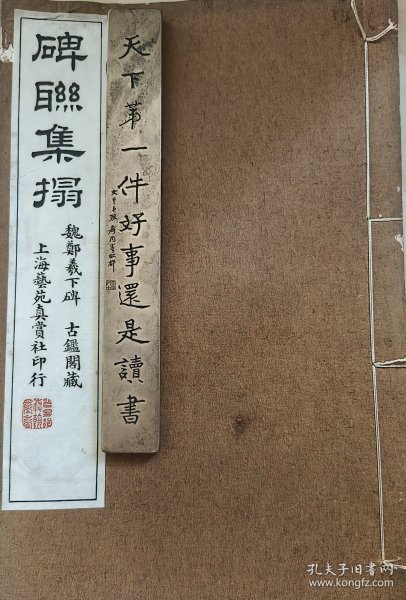 碑聯集搨
魏鄭羲下碑 古鑑閣藏
上海藝苑真賞社印行
天下第一件好事還是讀書
孔夫子旧书网
www.kongfz.com